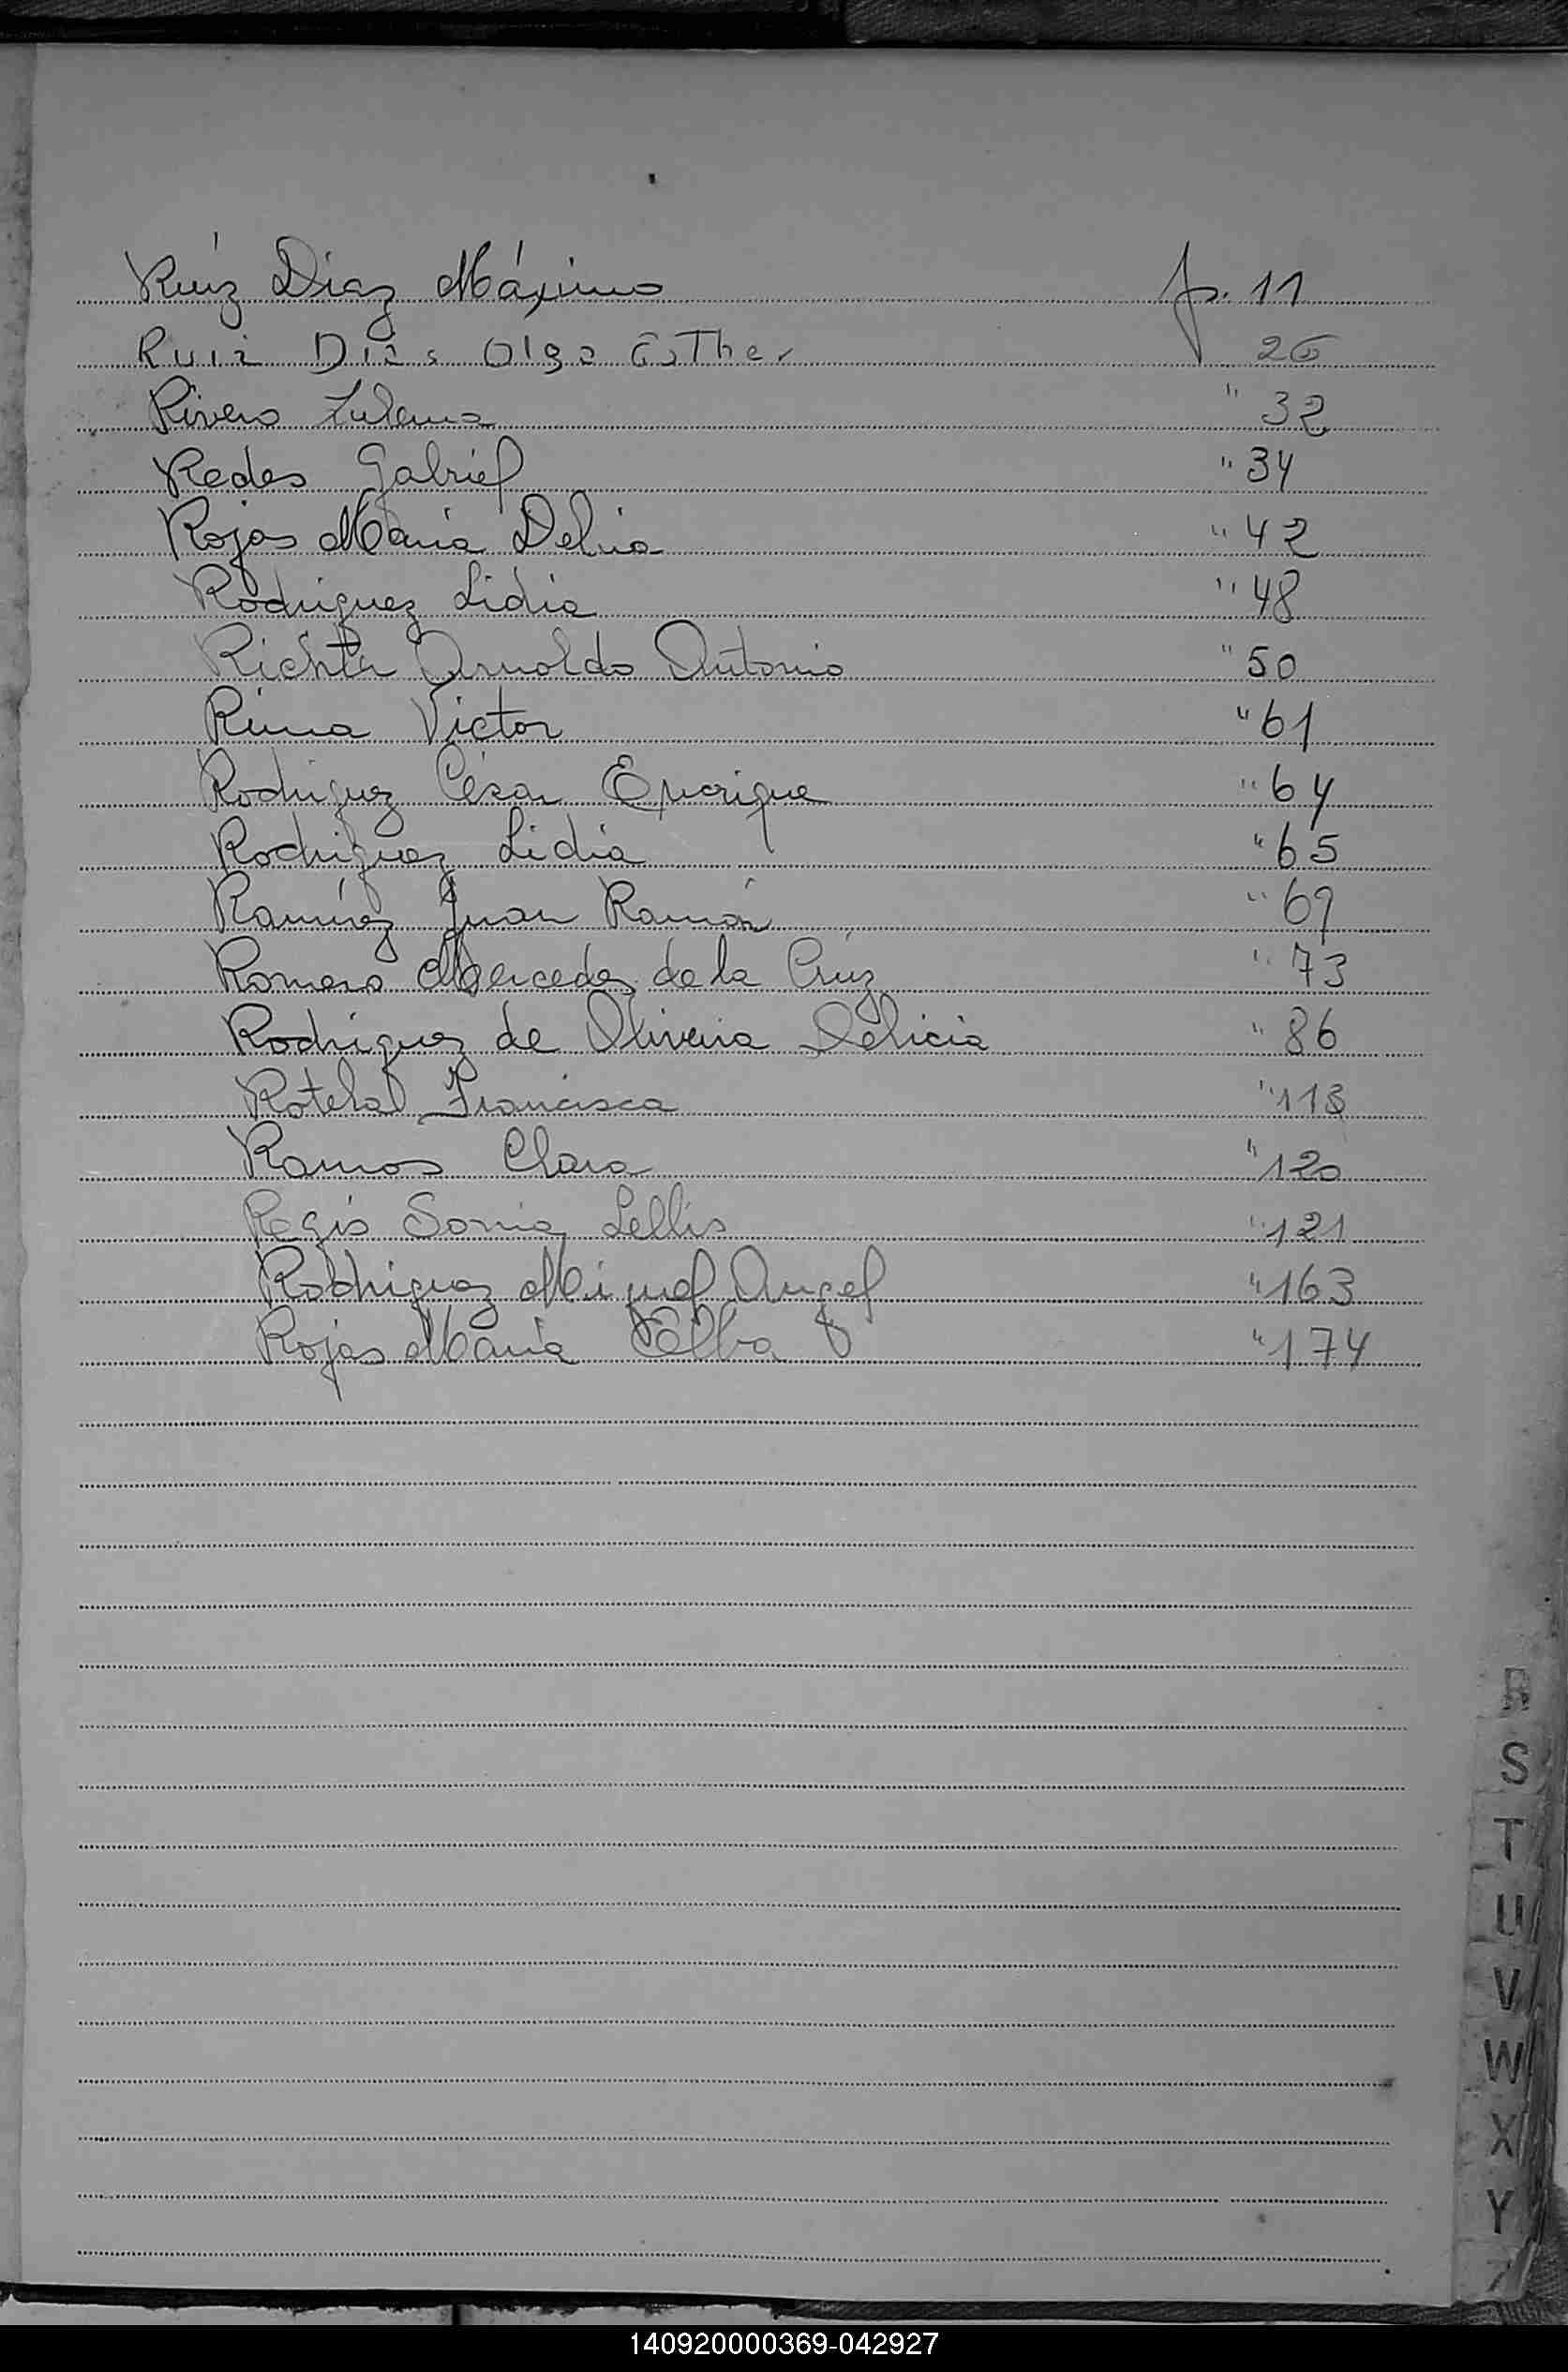 Ruíz Diaz Máximo f. 11
Ruiz Dias Olga Esther 26
Rivero Zulema " 32
Redes Gabriel " 34
Rojas Maria Delia " 42
Rodriguez Lidia " 48
Richter Arnoldo Antonio " 50
Rima Victor " 61
Rodriguez César Enrique " 64
Rodriguez Lidia " 65
Ramírez Juan Ramón " 69
Romero Mercedes de la Cruz " 73
Rodriguez de Oliveira Delicia " 86
Rotela Francisca " 113
Ramos Clara " 120
Regis Sonia Lellis " 121
Rodriguez Miguel Angel " 163
Rojas Maria Elba " 174
R
S
T
U
V
W
X
Y
Z
140920000369-042927